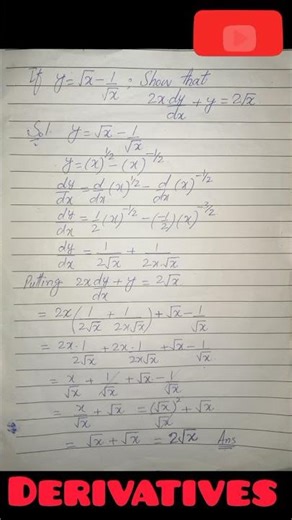 If y = √x - 1/√x ; Show that
2x dy/dx + y = 2√x
Sol. y = √x - 1/√x
y = (x)^1/2 - (x)^-1/2
dy/dx = d/dx (x)^1/2 - d/dx (x)^-1/2
dy/dx = 1/2 (x)^-1/2 - (-1/2)(x)^-3/2
dy/dx = 1/2√x + 1/2x·√x
Putting 2x dy/dx + y = 2√x
= 2x(1/2√x + 1/2x√x) + √x - 1/√x
= 2x·1/2√x + 2x·1/2x√x + √x - 1/√x
= x/√x + 1/√x + √x - 1/√x
= x/√x + √x = (√x)²/√x + √x
= √x + √x = 2√x Ans
DERIVATIVES